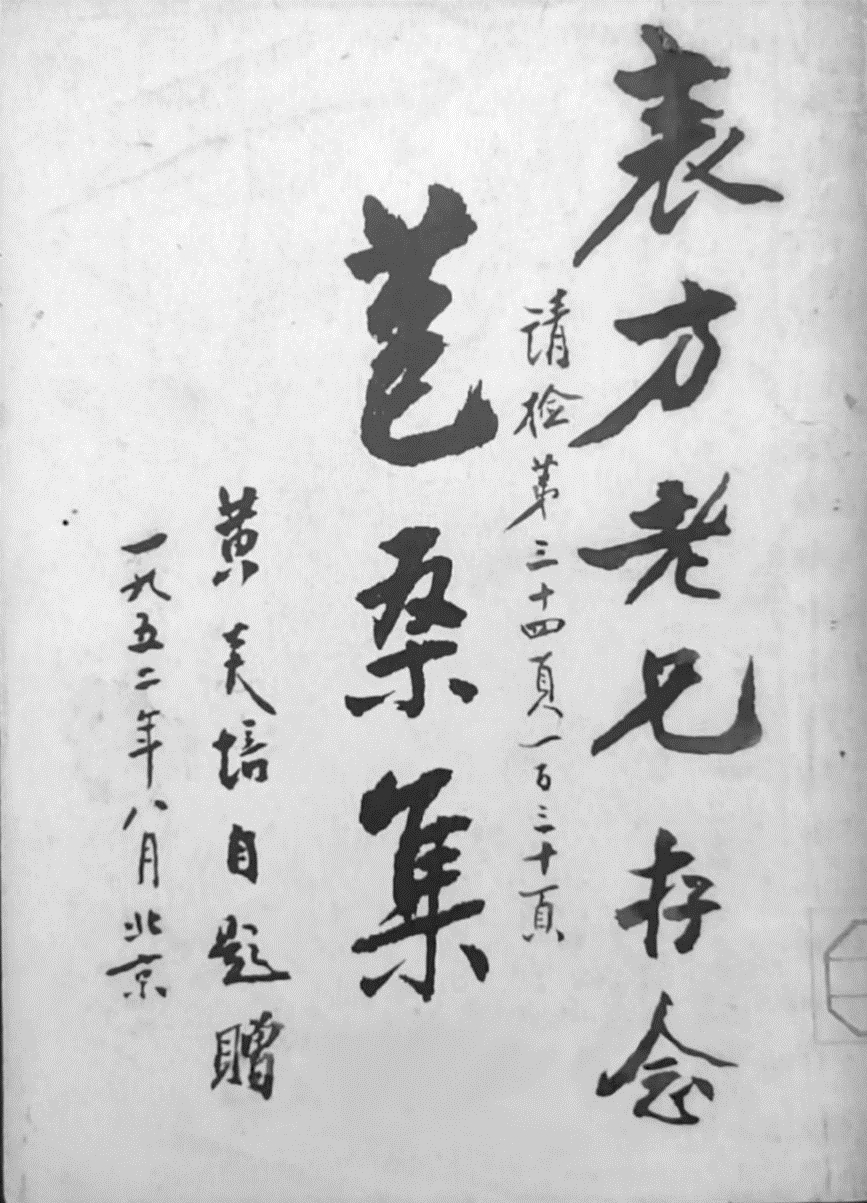 表方老兄存念
请检第三十四頁一百三十頁
苞桑集
黄炎培自题贈
一九五二年八月北京